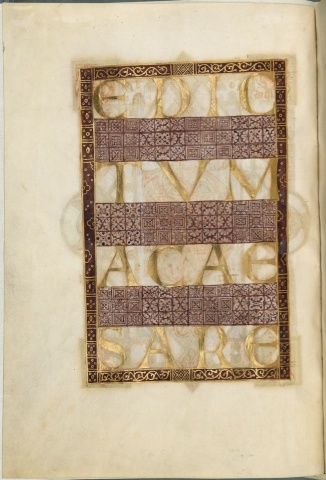 EDIC
TVM
ACAE
SARE